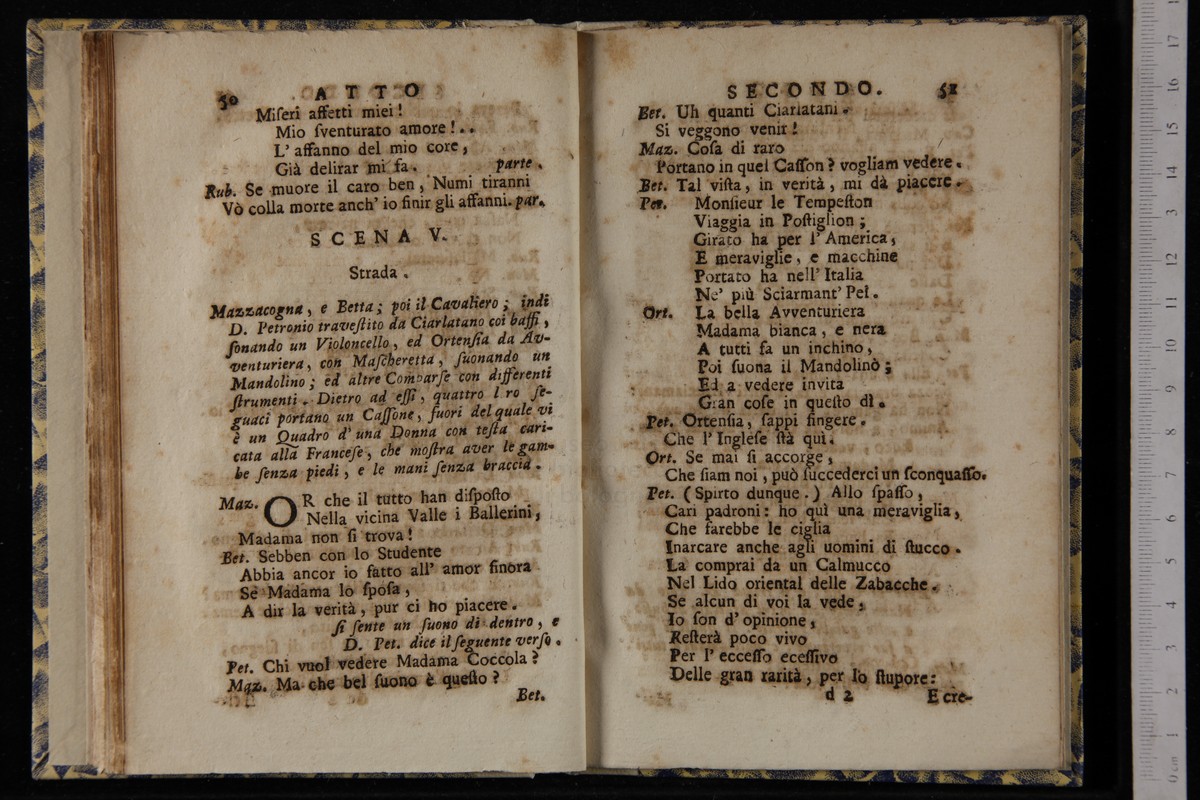 50
ATTO
Miſeri affetti miei!
Mio ſventurato amore!..
L' affanno del mio core,
Già delirar mi fa. parte.
Rub. Se muore il caro ben, Numi tiranni
Vò colla morte anch' io finir gli affanni. par.
SCENA V.
Strada.
Mazzacogna, e Betta; poi il Cavaliero; indi
D. Petronio traveſtito da Ciarlatano coi baffi,
ſonando un Violoncello, ed Ortenſia da Av-
venturiera, con Maſcheretta, ſuonando un
Mandolino; ed altre Comparſe con differenti
ſtrumenti. Dietro ad eſſi, quattro loro ſe-
guaci portano un Caſſone, fuori del quale vi
è un Quadro d' una Donna con teſta cari-
cata alla Franceſe, che moſtra aver le gam-
be ſenza piedi, e le mani ſenza braccia.
Maz. OR che il tutto han diſpoſto
Nella vicina Valle i Ballerini,
Madama non ſi trova!
Bet. Sebben con lo Studente
Abbia ancor io fatto all' amor finora
Se Madama lo ſpoſa,
A dir la verità, pur ci ho piacere.
ſi ſente un ſuono di dentro, e
D. Pet. dice il ſeguente verſo.
Pet. Chi vuol vedere Madama Coccola?
Maz. Ma che bel ſuono è queſto?
Bet.
SECONDO. 51
Bet. Uh quanti Ciarlatani.
Si veggono venir!
Maz. Coſa di raro
Portano in quel Caſſon? vogliam vedere.
Bet. Tal viſta, in verità, mi dà piacere.
Pet. Monſieur le Tempeſton
Viaggia in Poſtiglion;
Girato ha per l' America,
E meraviglie, e macchine
Portato ha nell' Italia
Ne' più Sciarmant' Peì.
Ort. La bella Avventuriera
Madama bianca, e nera
A tutti fa un inchino,
Poi ſuona il Mandolinò;
Ed a vedere invita
Gran coſe in queſto dì.
Pet. Ortenſia, ſappi fingere.
Che l' Ingleſe ſtà quì.
Ort. Se mai ſi accorge,
Che ſiam noi, può ſuccederci un ſconquaſſo.
Pet. (Spirto dunque.) Allo ſpaſſo,
Cari padroni: ho quì una meraviglia,
Che farebbe le ciglia
Inarcare anche agli uomini di ſtucco.
La comprai da un Calmucco
Nel Lido oriental delle Zabacche.
Se alcun di voi la vede,
Io ſon d' opinione,
Reſterà poco vivo
Per l' ecceſſo eceſſivo
Delle gran rarità, per lo ſtupore:
d 2 E cre-